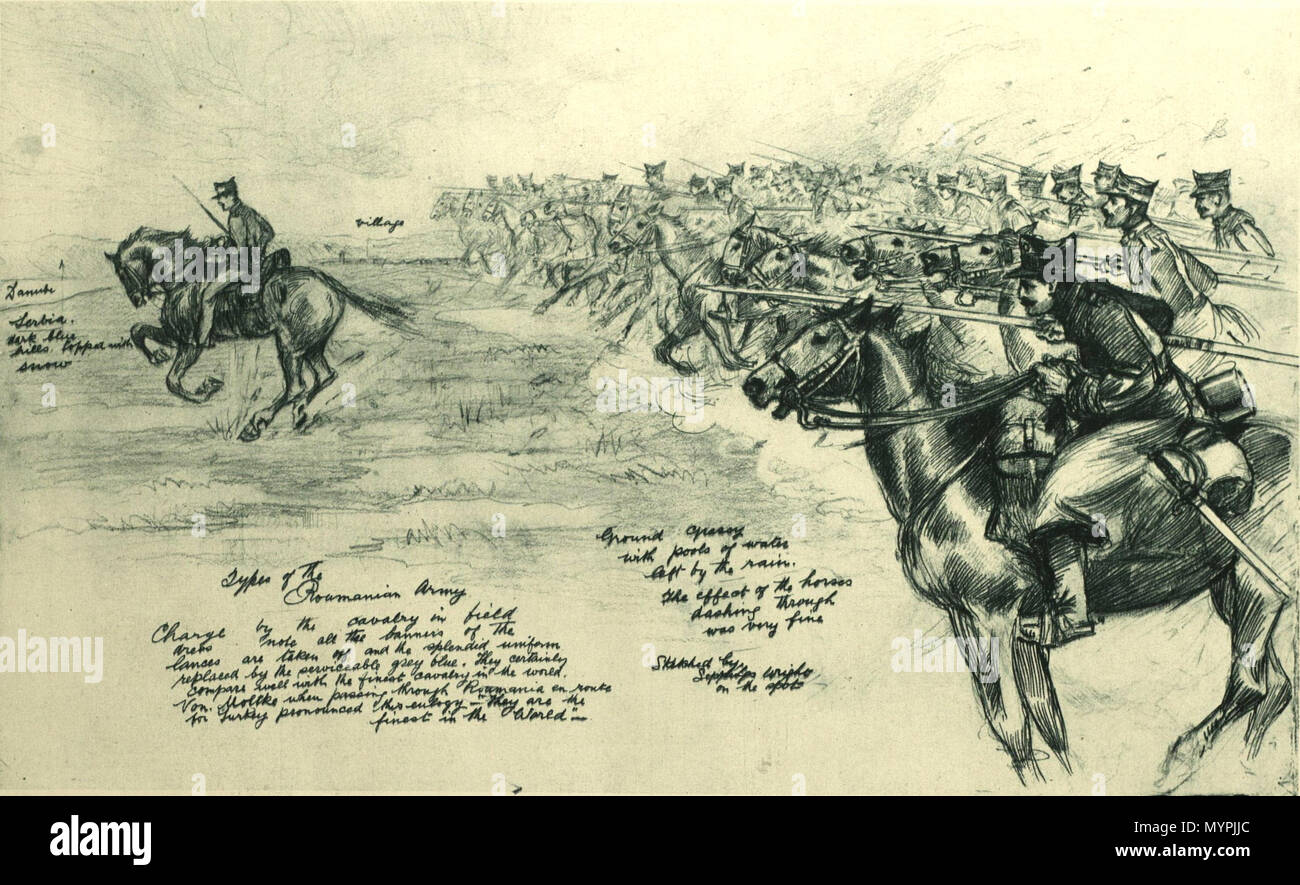 village
Danube
Serbia.
dark blue
hills topped with
snow
Types of the
Roumanian Army
Charge by the cavalry in field
dress note all the banners of the
lances are taken off and the splendid uniform
replaced by the serviceable grey blue. They certainly
compare well with the finest cavalry in the world.
Von. Moltke when passing through Roumania en route
for Turkey pronounced this eulogy "They are the
finest in the World"
Ground greasy
with pools of water
left by the rain.
The effect of the horses
dashing through
was very fine
Sketched by
Wright
on the spot
a
alamy
alamy stock photo
Image ID: MYPJJC
www.alamy.com